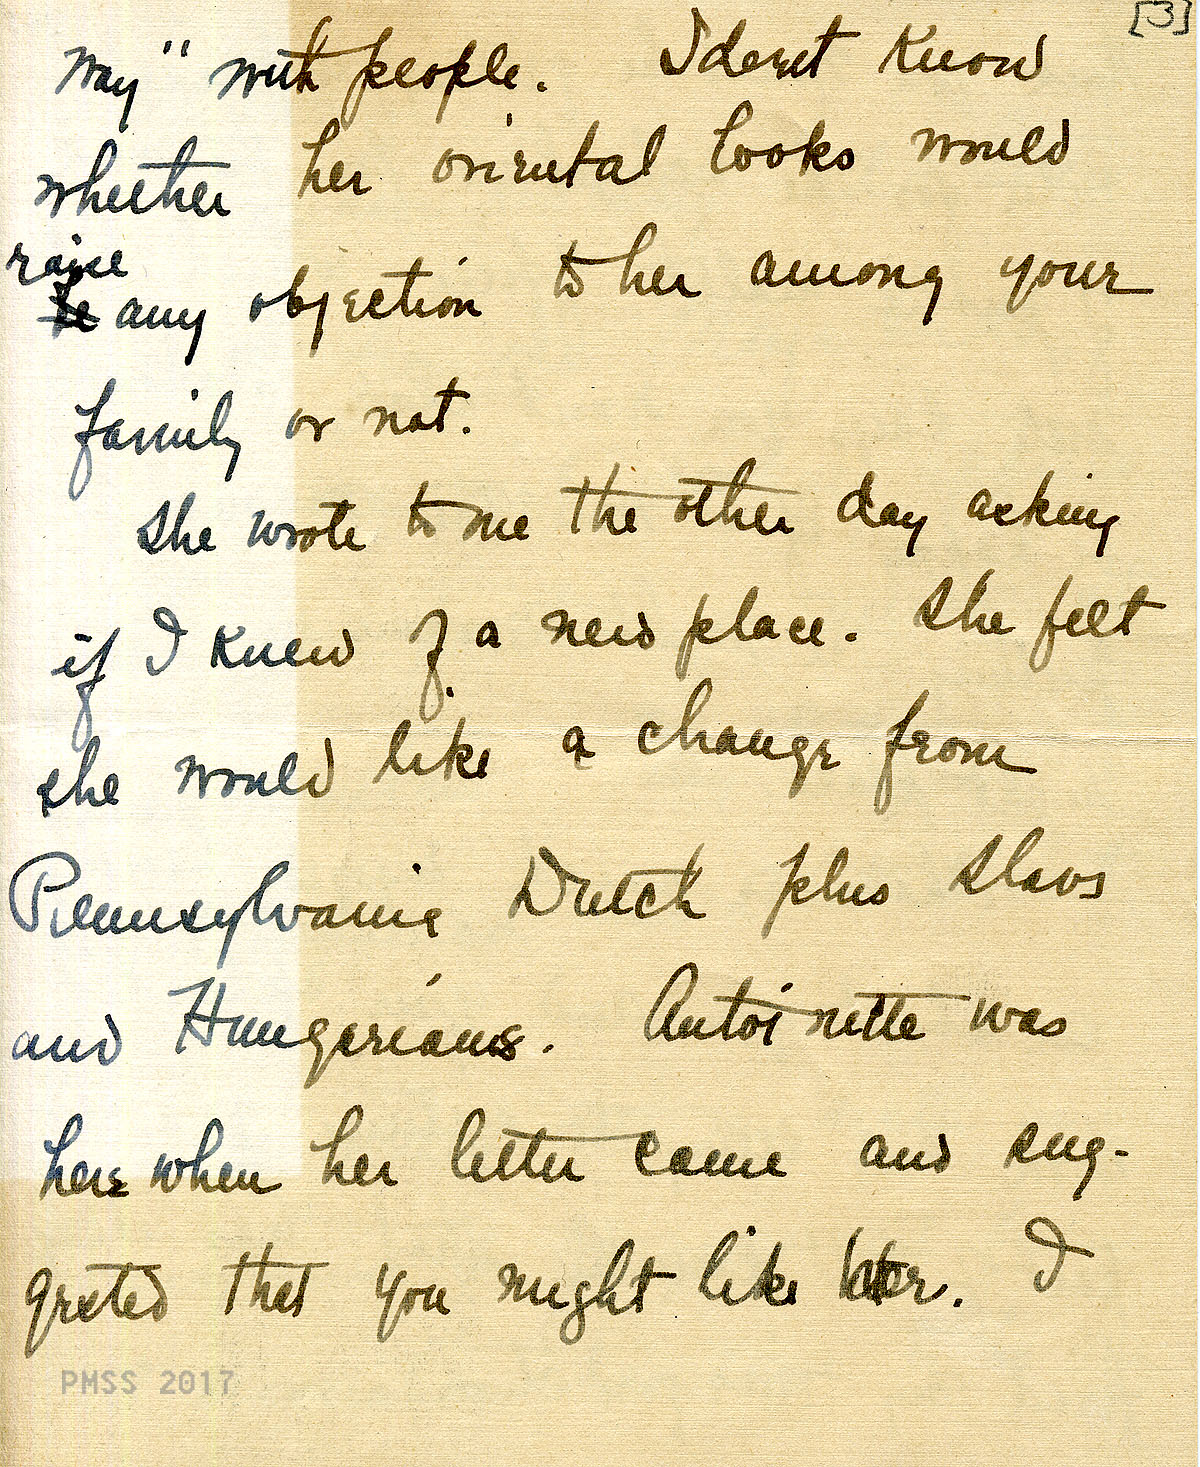 [3]
way" with people. I don't know
whether her oriental looks would
raise
be any objection to her among your
family or not.
She wrote to me the other day asking
if I knew of a new place. She felt
she would like a change from
Pennsylvania Dutch plus Slavs
and Hungarians. Antoinette was
here when her letter came and sug-
gested that you might like her. I
PMSS 2017